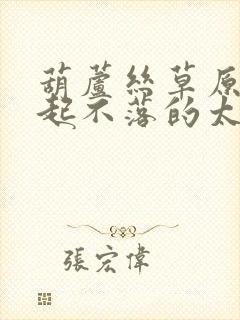 葫蘆絲草原
起不落的太
張宏偉